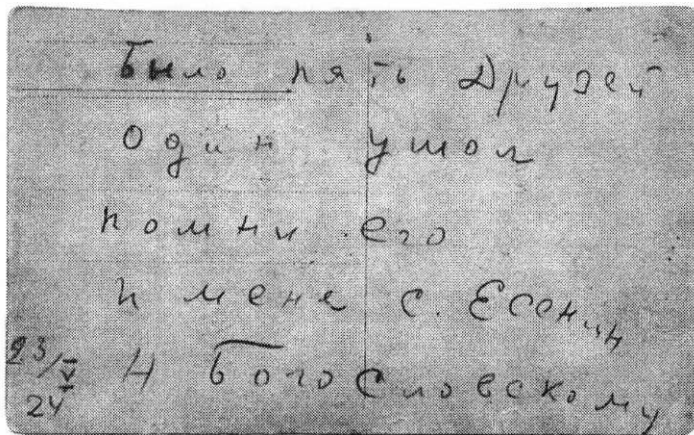 Было пять Друзей
Один ушол
помни его
и меня С. Есенин
23/V 24 Н Богословскому